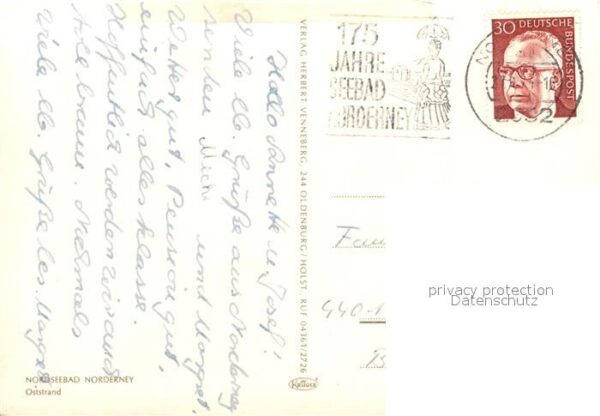 Hallo Annette u. Josef!
Viele lb. Grüße aus Norderney
senden Michi und Margret.
Wetter gut, Pension gut,
einfach alles klasse.
Hoffentlich werden wir auch
alle braun. Nochmals
viele lb. Grüße les Margret
VERLAG HERBERT VENNEBERG, 244 OLDENBURG/HOLST. RUF 04361/2726
NORDSEEBAD NORDERNEY
Oststrand
Krüger
175
JAHRE
SEEBAD
NORDERNEY
30 DEUTSCHE
BUNDESPOST
2982
Fam
440-
privacy protection
Datenschutz